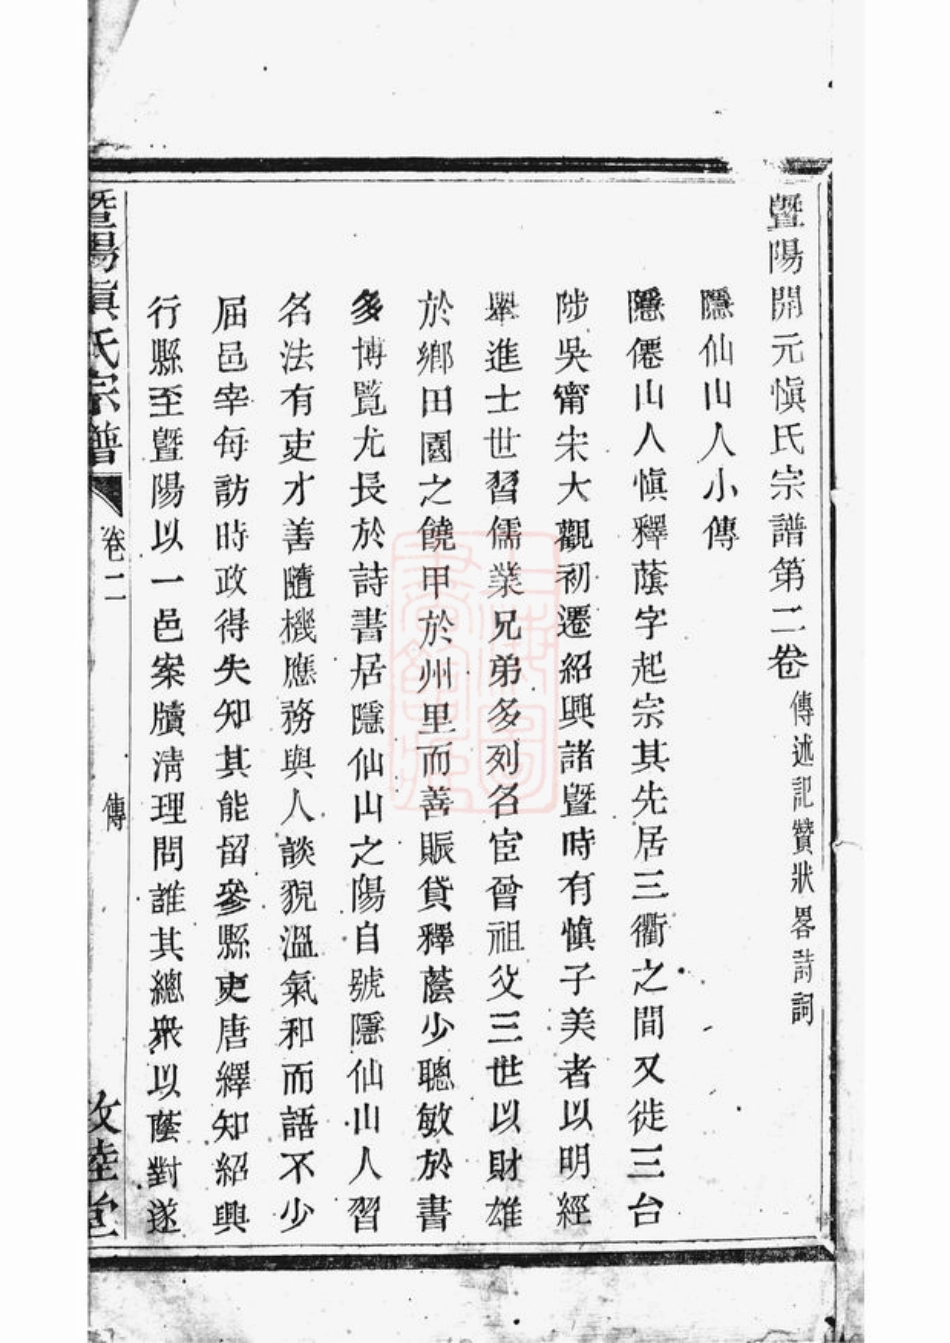 暨陽開元愼氏宗譜第二卷 傳述記贊狀畧詩詞
隱仙山人小傳
隱僊山人愼釋蔭字起宗其先居三衢之間又徙三台
陟吳甯宋大觀初遷紹興諸暨時有愼子美者以明經
舉進士世習儒業兄弟多列名宦曾祖父三世以財雄
於鄉田園之饒甲於州里而善賑貸釋蔭少聰敏於書
多博覽尤長於詩書居隱仙山之陽自號隱仙山人習
名法有吏才善隨機應務與人談貌溫氣和而語不少
屈邑宰每訪時政得失知其能留參縣吏唐繹知紹興
行縣至暨陽以一邑案牘淸理問誰其總衆以蔭對遂
暨陽愼氏宗譜
卷二
傳
敦睦堂